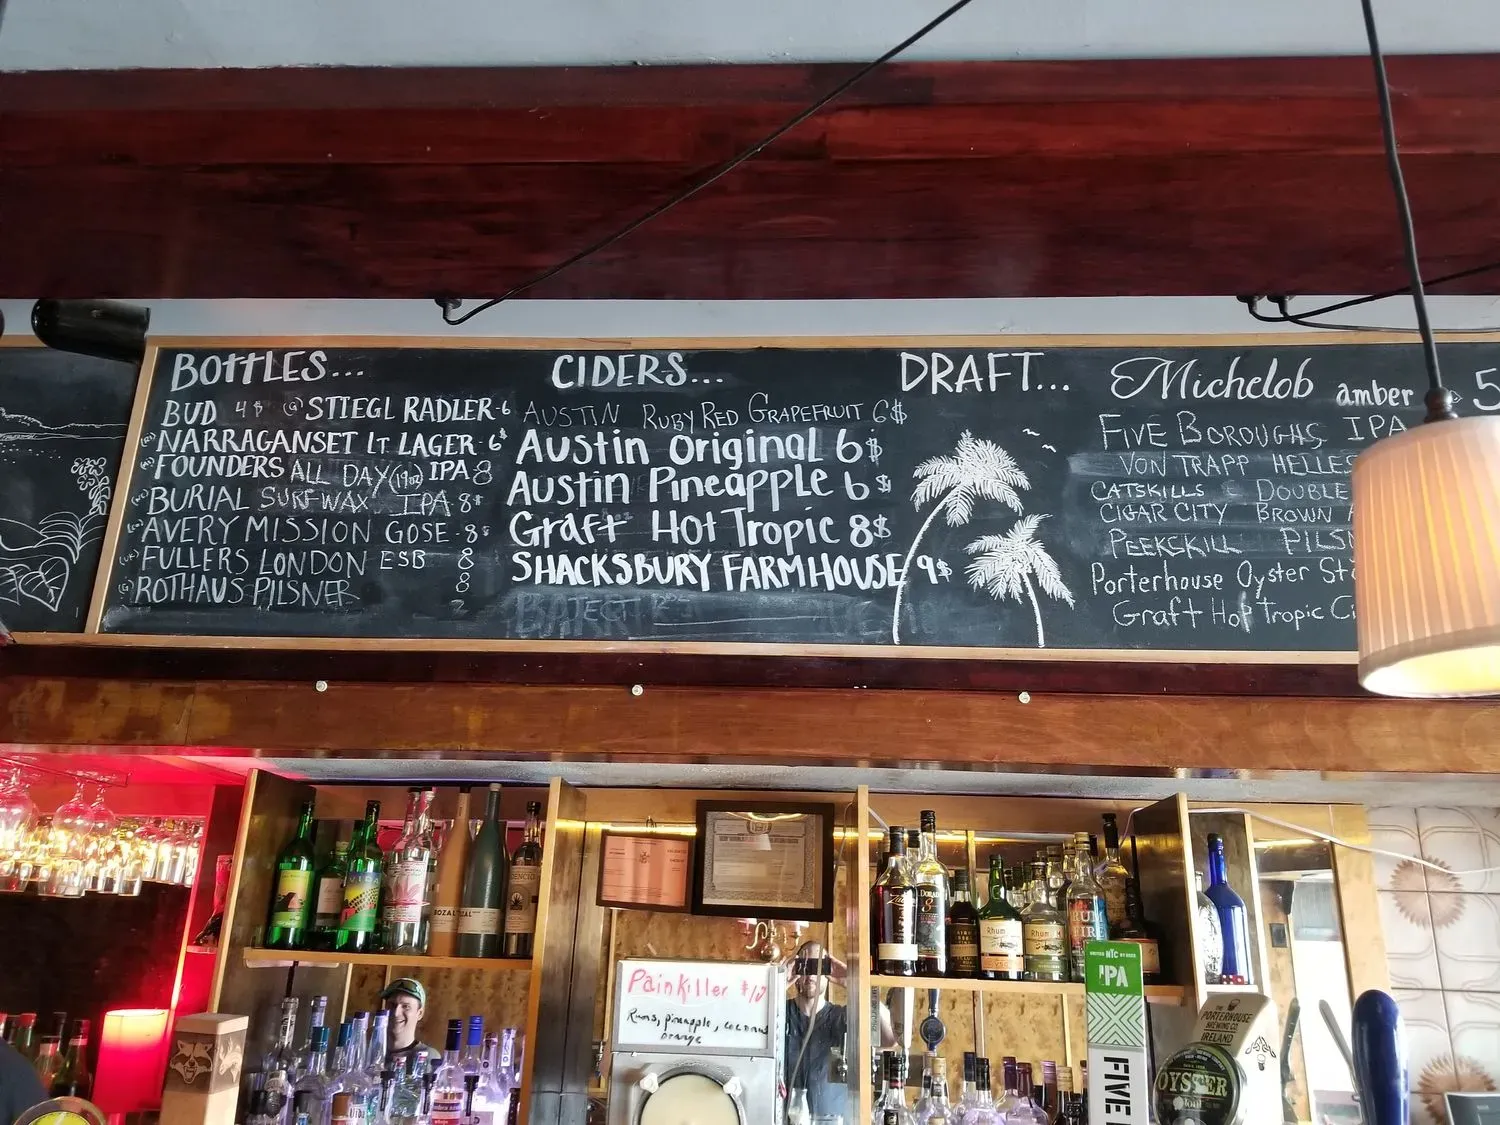 BOTTLES...
BUD 4$ (G) STIEGL RADLER-6
NARRAGANSET LT LAGER-6$
FOUNDERS ALL DAY (19oz) IPA 8
BURIAL SURFWAX IPA 8$
AVERY MISSION GOSE-8$
(UK) FULLERS LONDON ESB 8
(G) ROTHAUS PILSNER 8
CIDERS...
AUSTIN RUBY RED GRAPEFRUIT 6$
Austin Original 6$
Austin Pineapple 6$
Graft Hot Tropic 8$
SHACKSBURY FARMHOUSE 9$
DRAFT...
Michelob amber 5
FIVE BOROUGHS IPA
VON TRAPP HELLES
CATSKILLS DOUBLE
CIGAR CITY BROWN
PEEKSKILL PILSN
Porterhouse Oyster St
Graft Hop Tropic Ci
Painkiller $12
Rums, pineapple, coconut
orange
Rhum
RUM
FIRE
IPA
FIVE
THE
PORTERHOUSE
BREWING CO.
IRELAND
OYSTER